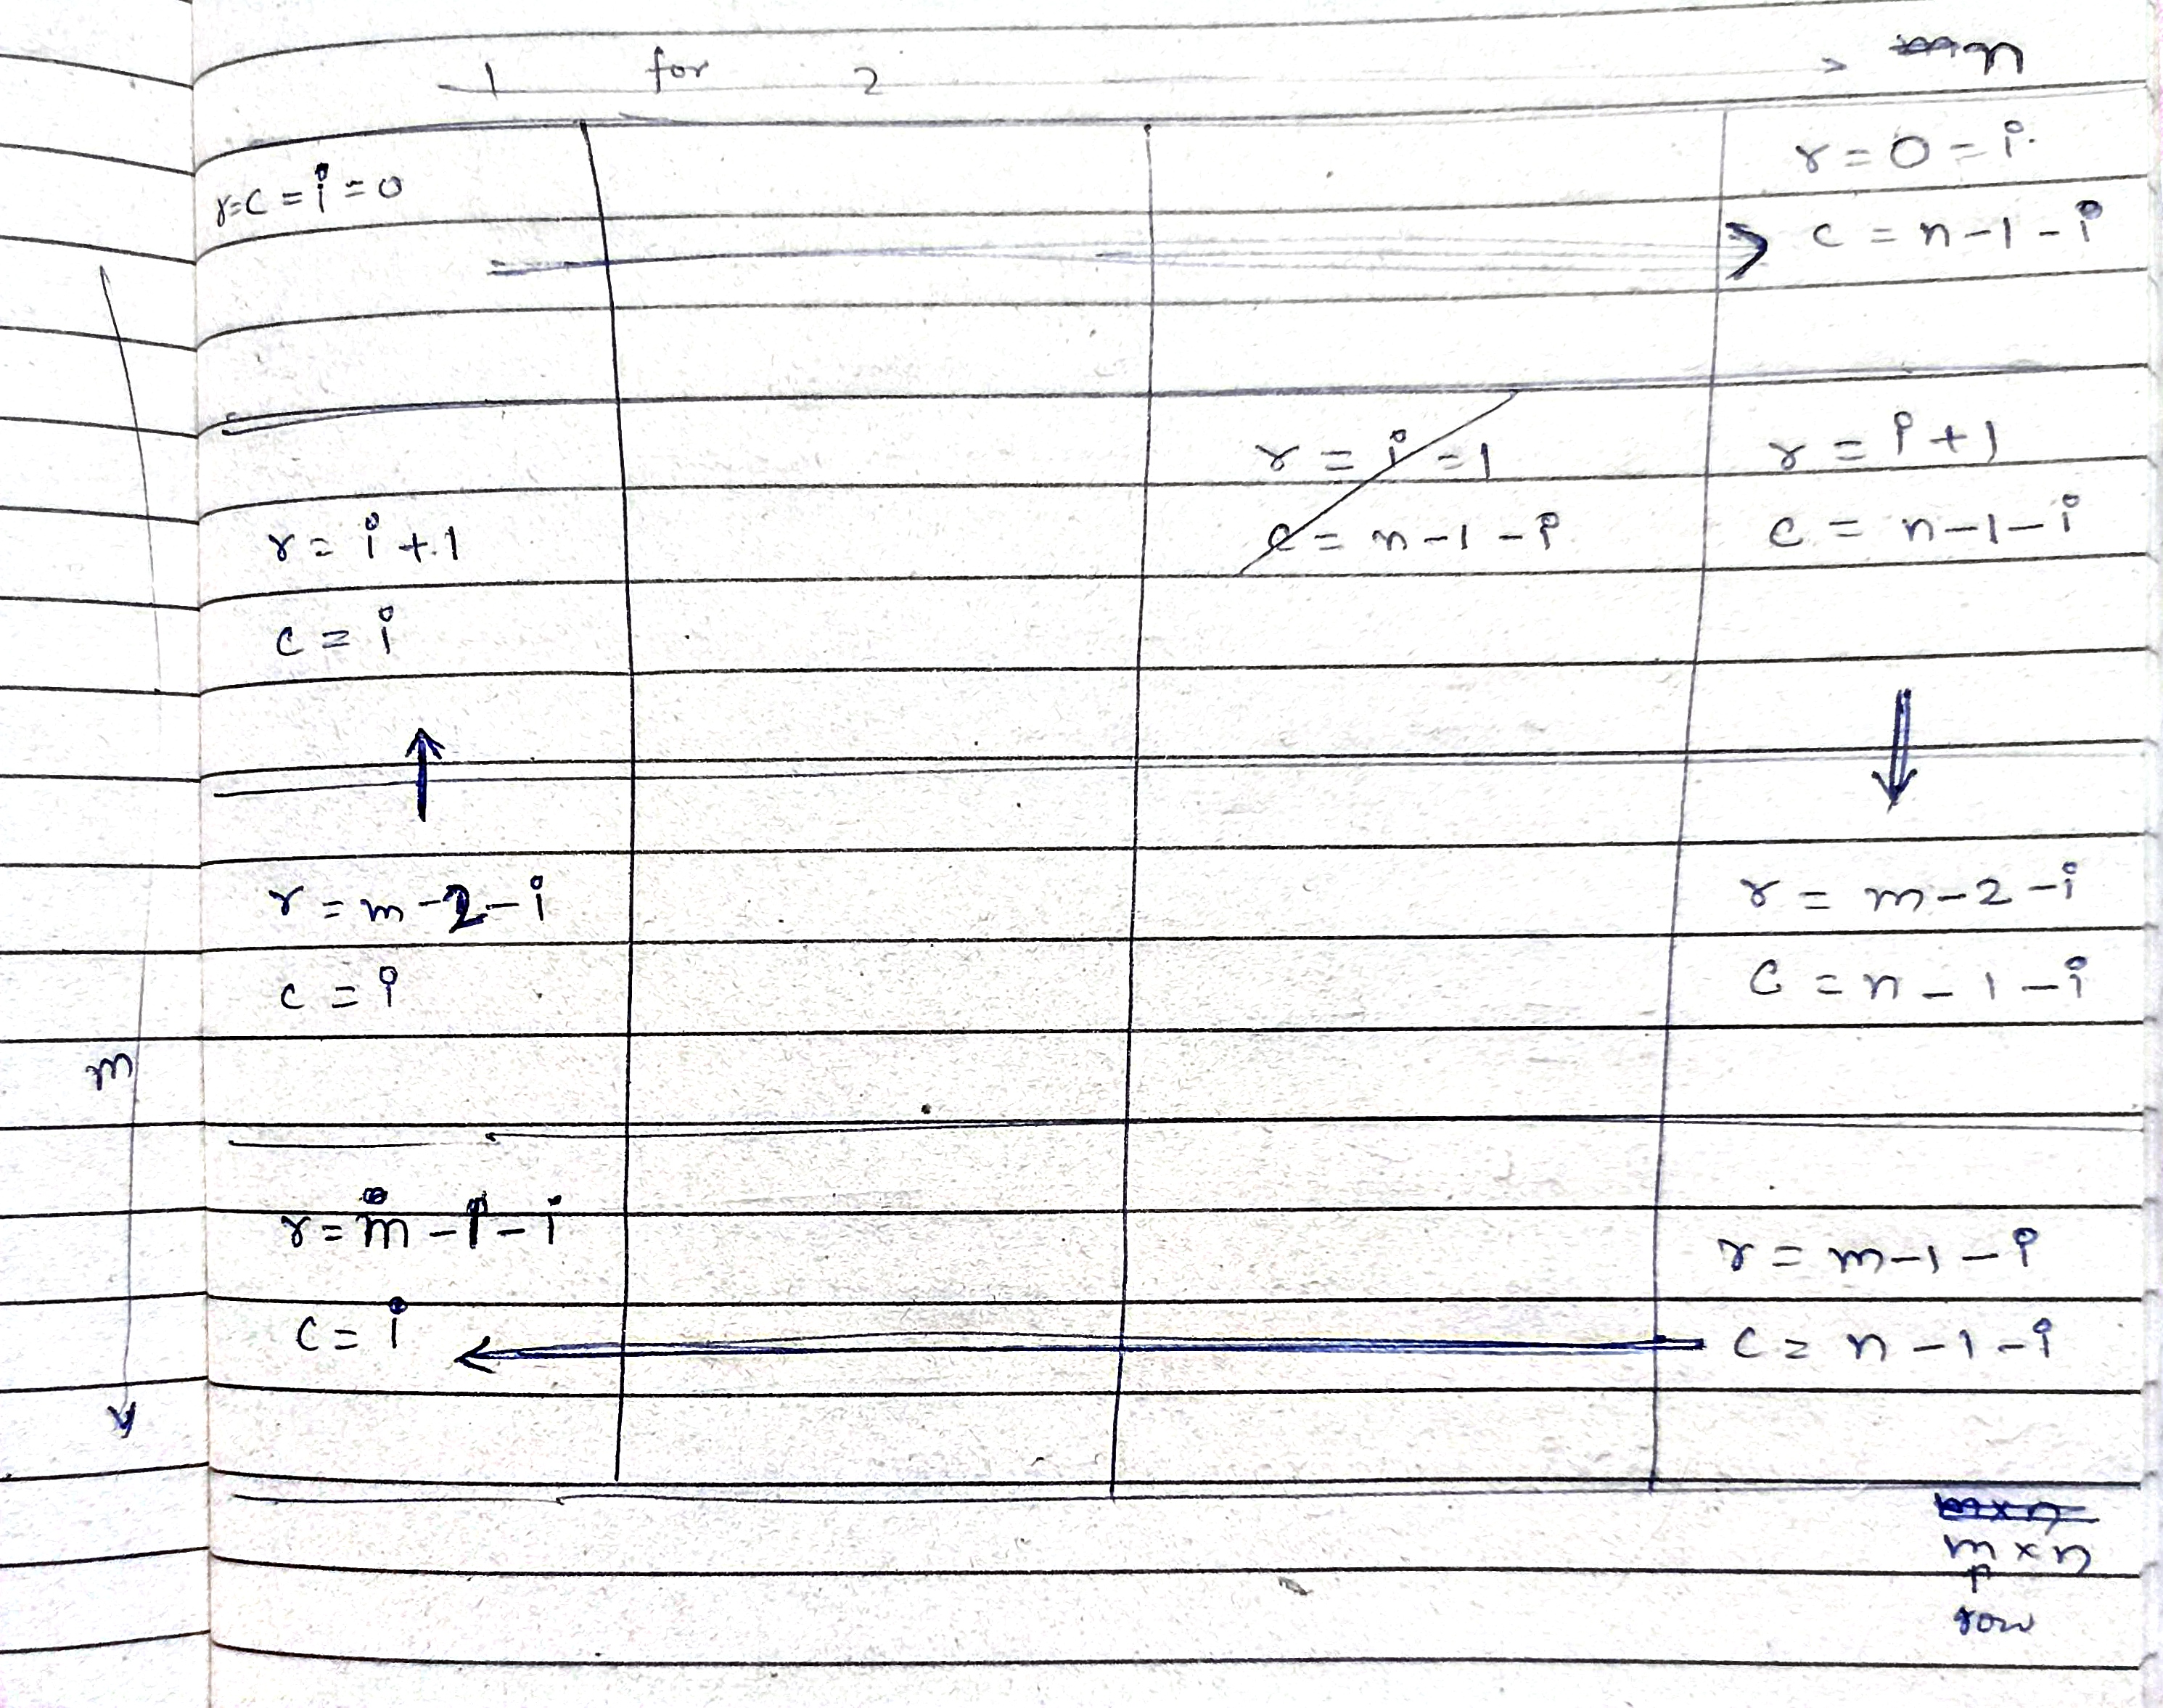 1 for 2 n
r=c=i=0
r=0=i
c=n-1-i
r=i=1
c=n-1-i
r=i+1
c=n-1-i
r=i+1
c=i
r=m-2-i
c=i
r=m-2-i
c=n-1-i
m
r=m-1-i
c=i
r=m-1-i
c=n-1-i
mxn
mxn
row